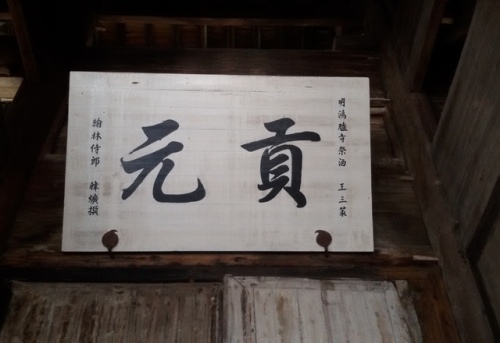 明鴻臚寺祭酒 王三
貢元
翰林侍郎 撰